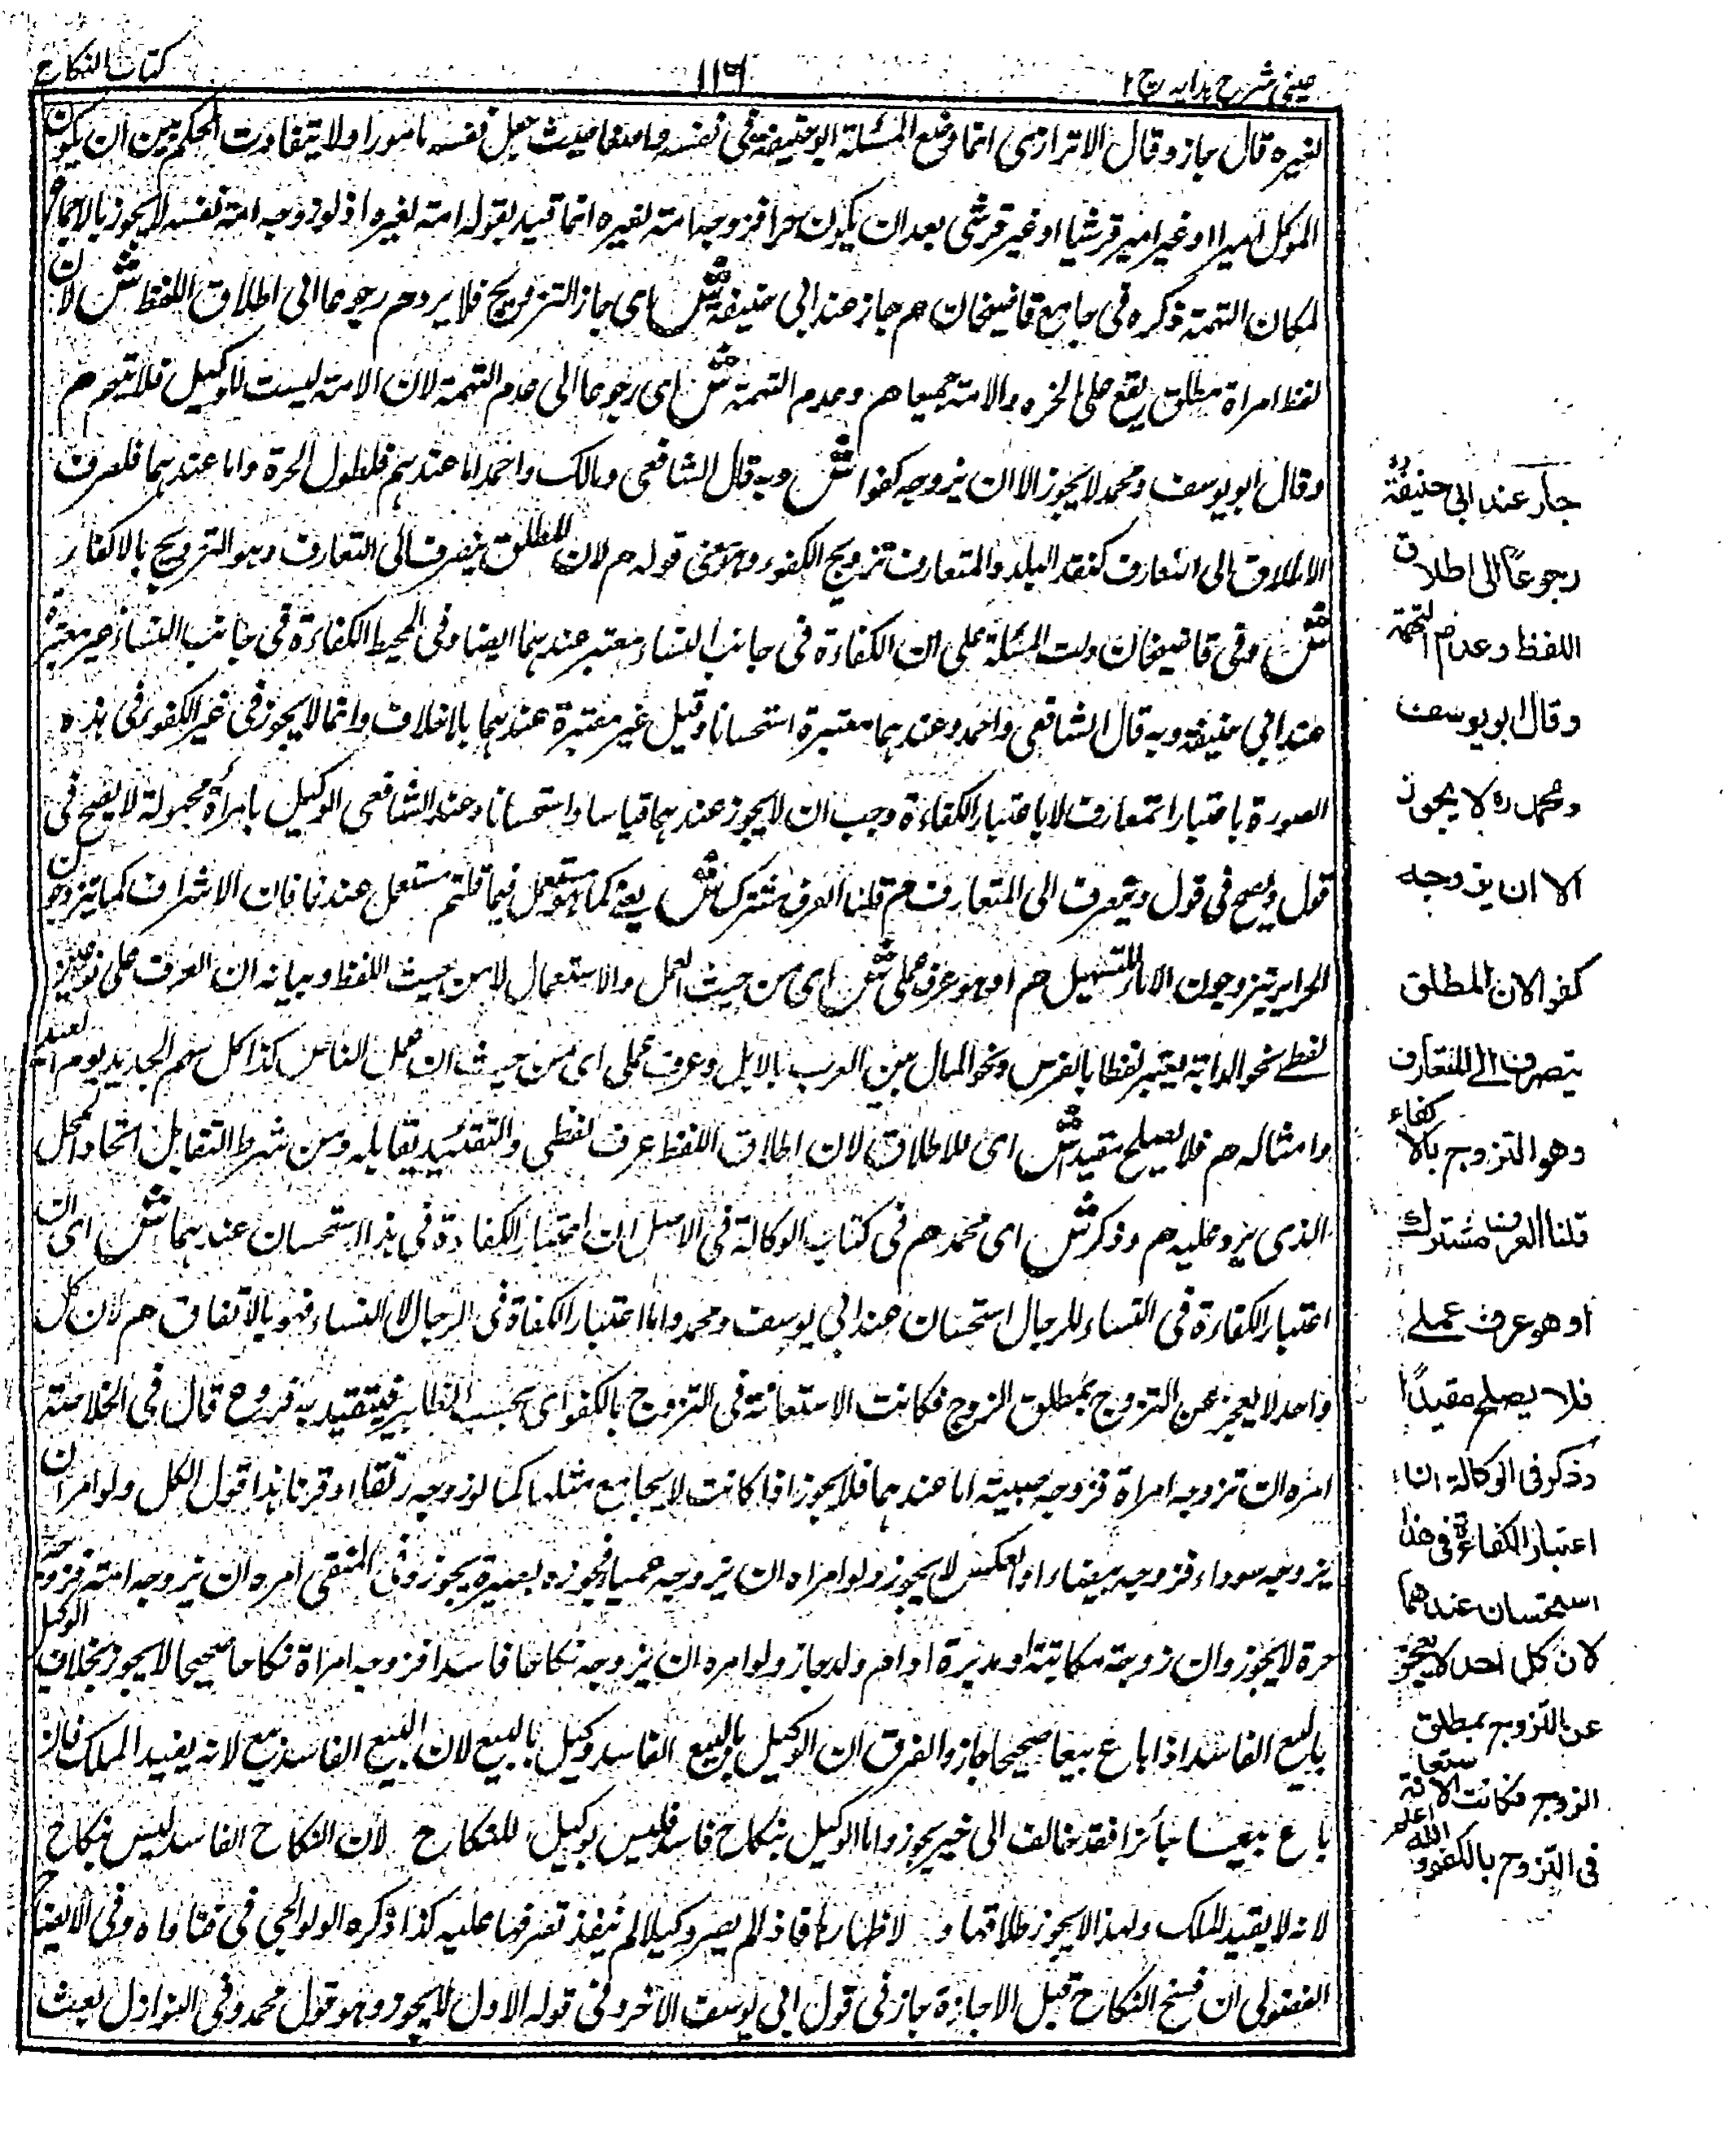 عینی شرح ہدایہ ج ۲
۱۱۶
کتاب النکاح
لغیره قال جاز وقال الاترازی انما وضع المسئلة ابوحنیفة فی نفسه واضعا حیث جعل نفسه مامورا ولا یتفاوت الحکم بین ان یکون
الموکل امیرا او غیر امیر قرشیا او غیر قرشی بعد ان یکون حرا فزوجه امة لغیره انما قید بقوله امة لغیره اذ لو زوجه امة نفسه لا یجوز بالاجماع
لمکان التهمة ذکره فی جامع قاضیخان هم جاز عند ابی حنیفة ش ای جاز التزویج فلا یرد هم رجوعا الی اطلاق اللفظ ش لان
لفظ امراة مطلق یقع علی الحره والامة جمیعا هم وعدم التهمة ش ای رجوعا الی عدم التهمة لان الامة لیست للوکیل فلا تهمة هم
وقال ابو یوسف ومحمد لا یجوز الا ان یزوجه کفوا ش وبه قال الشافعی ومالک واحمد اما عندهم فلطول الحرة واما عندهما فلصرف
الاطلاق الی المتعارف کنقد البلد والمتعارف تزویج الکفور وهو معنی قوله هم لان المطلق ینصرف الی المتعارف وهو التزویج بالاکفاء
ش وفی قاضیخان دلت المسئلة علی ان الکفاءة فی جانب النساء معتبر عندهما ایضا وفی المحیط الکفاءة فی جانب النساء غیر معتبرة
عند ابی حنیفة وبه قال الشافعی واحمد وعندهما معتبرة استحسانا وقیل غیر معتبرة عندهما بلاخلاف وانما لا یجوز فی غیر الکفو فی هذه
الصورة باعتبار المتعارف لا باعتبار الکفاءة وجب ان لا یجوز عندهما قیاسا واستحسانا وعند الشافعی الوکیل بامرأة مجهولة لا یصح فی
قول ویصح فی قول ویصرف الی المتعارف هم قلنا العرف مشترک ش یعنی کما هو مستعمل فیما قلتم مستعمل عندنا فان الاشراف کما یتزوجون
الحرایر یتزوجون الاماء للتسهیل هم او هو عرف عملی ش ای من حیث العمل والاستعمال لا من حیث اللفظ وبیانه ان العرف علی نوعین
لفظی نحو الدابة یعتبر لفظا بالفرس ونحو المال بین العرب بالابل وعرف عملی ای من حیث ان عمل الناس کذا کلبسهم الجدید یوم العید
وامثاله هم فلا یصلح مقیدا ش ای للاطلاق لان اطلاق اللفظ عرف لفظی والتقیید یقابله ومن شرط التقابل اتحاد المحل
الذی یرد علیه هم وذکر ش ای محمد هم فی کتاب الوکالة فی الاصل ان اعتبار الکفاءة فی هذا استحسان عندهما ش ای ان
اعتبار الکفاءة فی النساء للرجال استحسان عند ابی یوسف ومحمد واما اعتبار الکفاة فی الرجال لا النساء فهو بالاتفاق هم لان کل
واحد لا یعجز عن التزوج بمطلق الزوج فکانت الاستعانة فی التزوج بالکفو ای بحسب الظاهر فیتقید به فروع قال فی الخلاصة
امره ان تزوجه امراة فزوجه صبیة اما عندهما فلا یجوز اذا کانت لا یجامع مثلها کما لو زوجه رتقا او قرنا هذا قول الکل ولو امر ان
یزوجه سوداء فزوجه بیضاء او بالعکس لا یجوز ولو امراه ان یزوجه عمیا فجوزه بصیرة یجوز وفی المنتقی امره ان یزوجه امة فزوجه
حرة لا یجوز وان زوجة مکاتبة او مدبرة او ام ولد جاز ولو امره ان یزوجه نکاحا فاسدا فزوجه امراة نکاحا صحیحا لا یجوز بخلاف الوکیل
بالبیع الفاسد اذا باع بیعا صحیحا جاز والفرق ان الوکیل بالبیع الفاسد وکیل بالبیع لان البیع الفاسد بیع لانه یفید الملک فاذا
باع بیعا جائزا فقد خالف الی خیر یجوز واما الوکیل بنکاح فاسد فلیس بوکیل للنکاح لان النکاح الفاسد لیس نکاح
لانه لا یفید الملک ولهذا لا یجوز طلاقها و لاظهارها فاذ لم یصر وکیلا لم ینفذ تصرفها علیه کذا ذکره الولوالجی فی فتاواه وفی الایضاح
الفضولی ان فسخ النکاح قبل الاجازة جاز فی قول ابی یوسف الاخر وفی قوله الاول لا یجوز وهو قول محمد وفی النوازل بعث
جاز عند ابی حنیفة رح
رجوعاً الی اطلاق
اللفظ وعدم التهمة
وقال ابو یوسف
ومحمد رہ لا یجوز
الا ان یزوجه
کفوا لان المطلق
یتصرف الی المتعارف
وهو التزوج بالاکفاء
قلنا العرف مشترک
او هو عرف عملی
فلا یصلح مقیداً
وذکر فی الوکالة ان
اعتبار الکفاءة فی هذا
استحسان عندهما
لان کل احد لا یعجز
عن التزوج بمطلق
الزوج فکانت الاستعانة
فی التزوج بالکفو والله اعلم